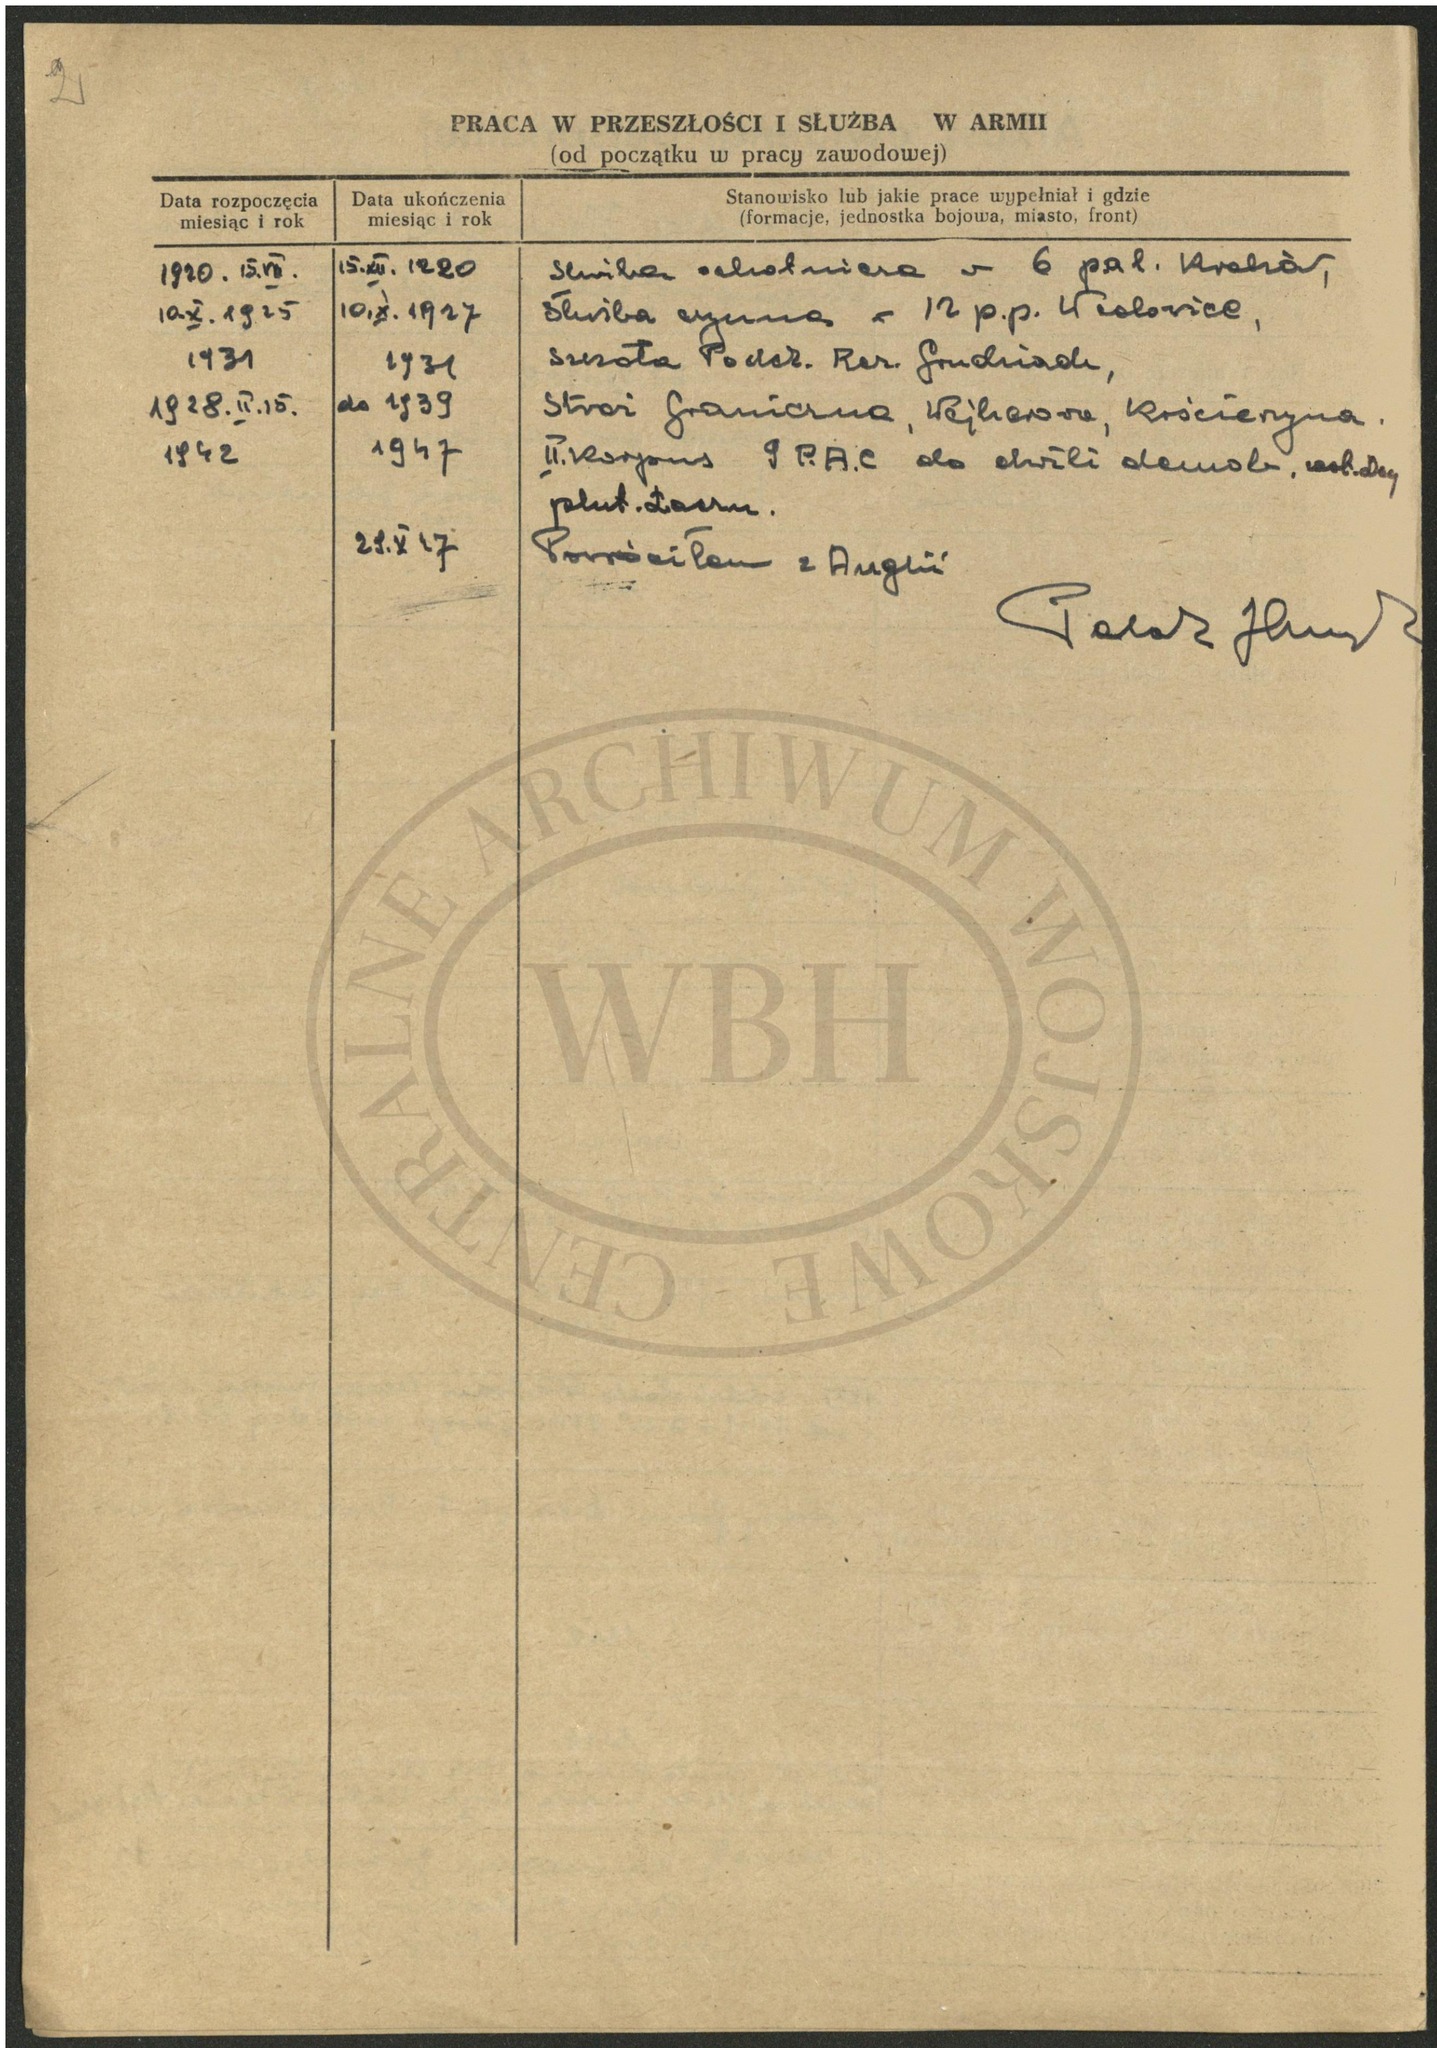 2
PRACA W PRZESZŁOŚCI I SŁUŻBA W ARMII
(od początku w pracy zawodowej)
Data rozpoczęcia miesiąc i rok
Data ukończenia miesiąc i rok
Stanowisko lub jakie prace wypełniał i gdzie
(formacje, jednostka bojowa, miasto, front)
1920. 15.VII. 15.XII. 1920 Służba ochotnicza w 6 pal. Kraków,
10.X. 1925 10.X. 1927 Służba czynna w 12 p.p. Wadowice,
1931 1931 Szkoła Podch. Rez. Grudziądz,
1928.II.15. do 1939 Straż Graniczna, Wejherowo, Kościerzyna.
1942 1947 II.Korpus 9 P.A.C do chwili demob.
plut. łączn.
29.X 47 Powróciłem z Anglii
CENTRALNE ARCHIWUM WOJSKOWE
WBH